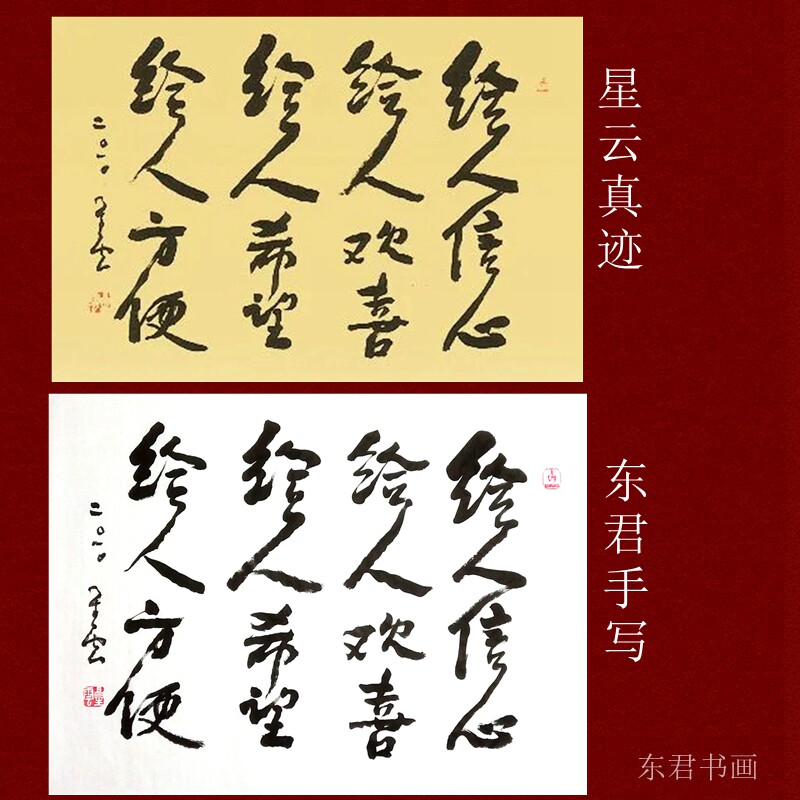 给人信心
给人欢喜
给人希望
给人方便
二〇一〇
星云
星云真迹
给人信心
给人欢喜
给人希望
给人方便
二〇一〇
星云
东君手写
东君书画